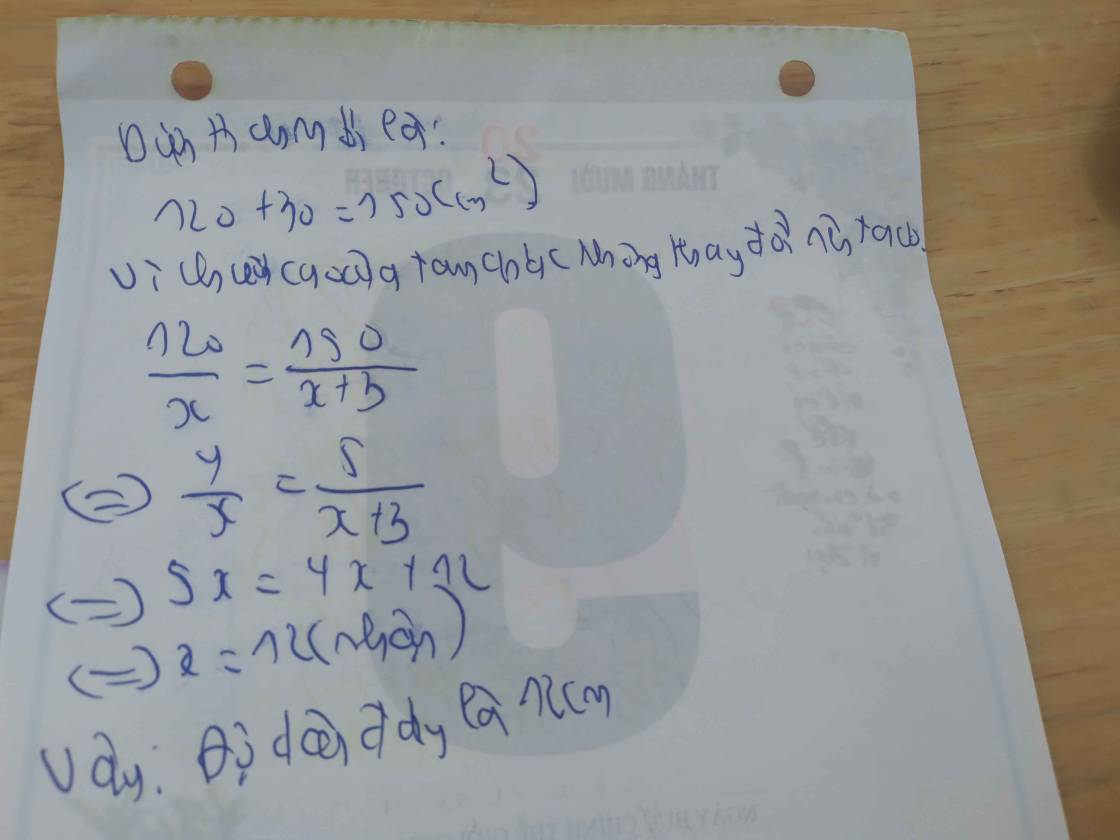 Diện tích lúc sau là:
120 + 30 = 150 (cm²)
Vì chiều cao của tam giác không thay đổi nên ta có:
120/x = 150/(x+3)
(=) 4/x = 5/(x+3)
(=) 5x = 4x + 12
(=) x = 12 (nhận)
Vậy: Độ dài đáy là 12cm
THÁNG MƯỜI 20 23 OCTOBER
9